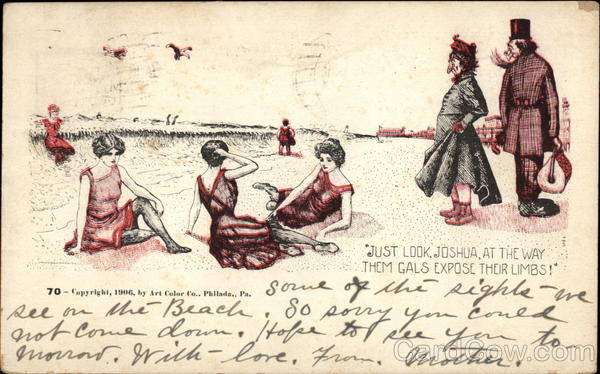 "JUST LOOK, JOSHUA, AT THE WAY
THEM GALS EXPOSE THEIR LIMBS!"
70 - Copyright, 1906, by Art Color Co., Philada., Pa.
Some of the sights we
see on the Beach. So sorry you could
not come down. Hope to see you to
morrow. With love. From. Mother.
CardCow.com